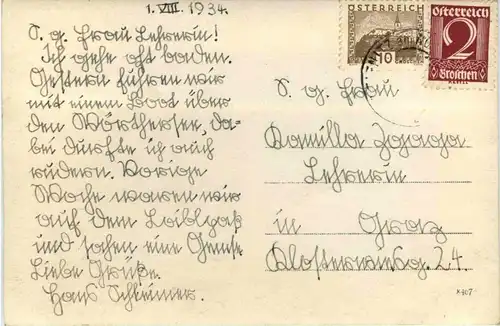 1. VIII. 1934.
S. g. Frau Lehrerin!
Ich gehe oft baden.
Gestern fuhren wir
mit einem Boot über
den Wörthersee, da-
bei durfte ich auch
rudern. Vorige
Woche waren wir
auf dem Loiblpaß
und sahen eine Gemse.
Liebe Grüße.
Hans Schleimer.
ÖSTERREICH
10
Österreich
2
Groschen
S. g. Frau
Kamilla
Lehrerin
in Graz
Klosterwiesg. 24.